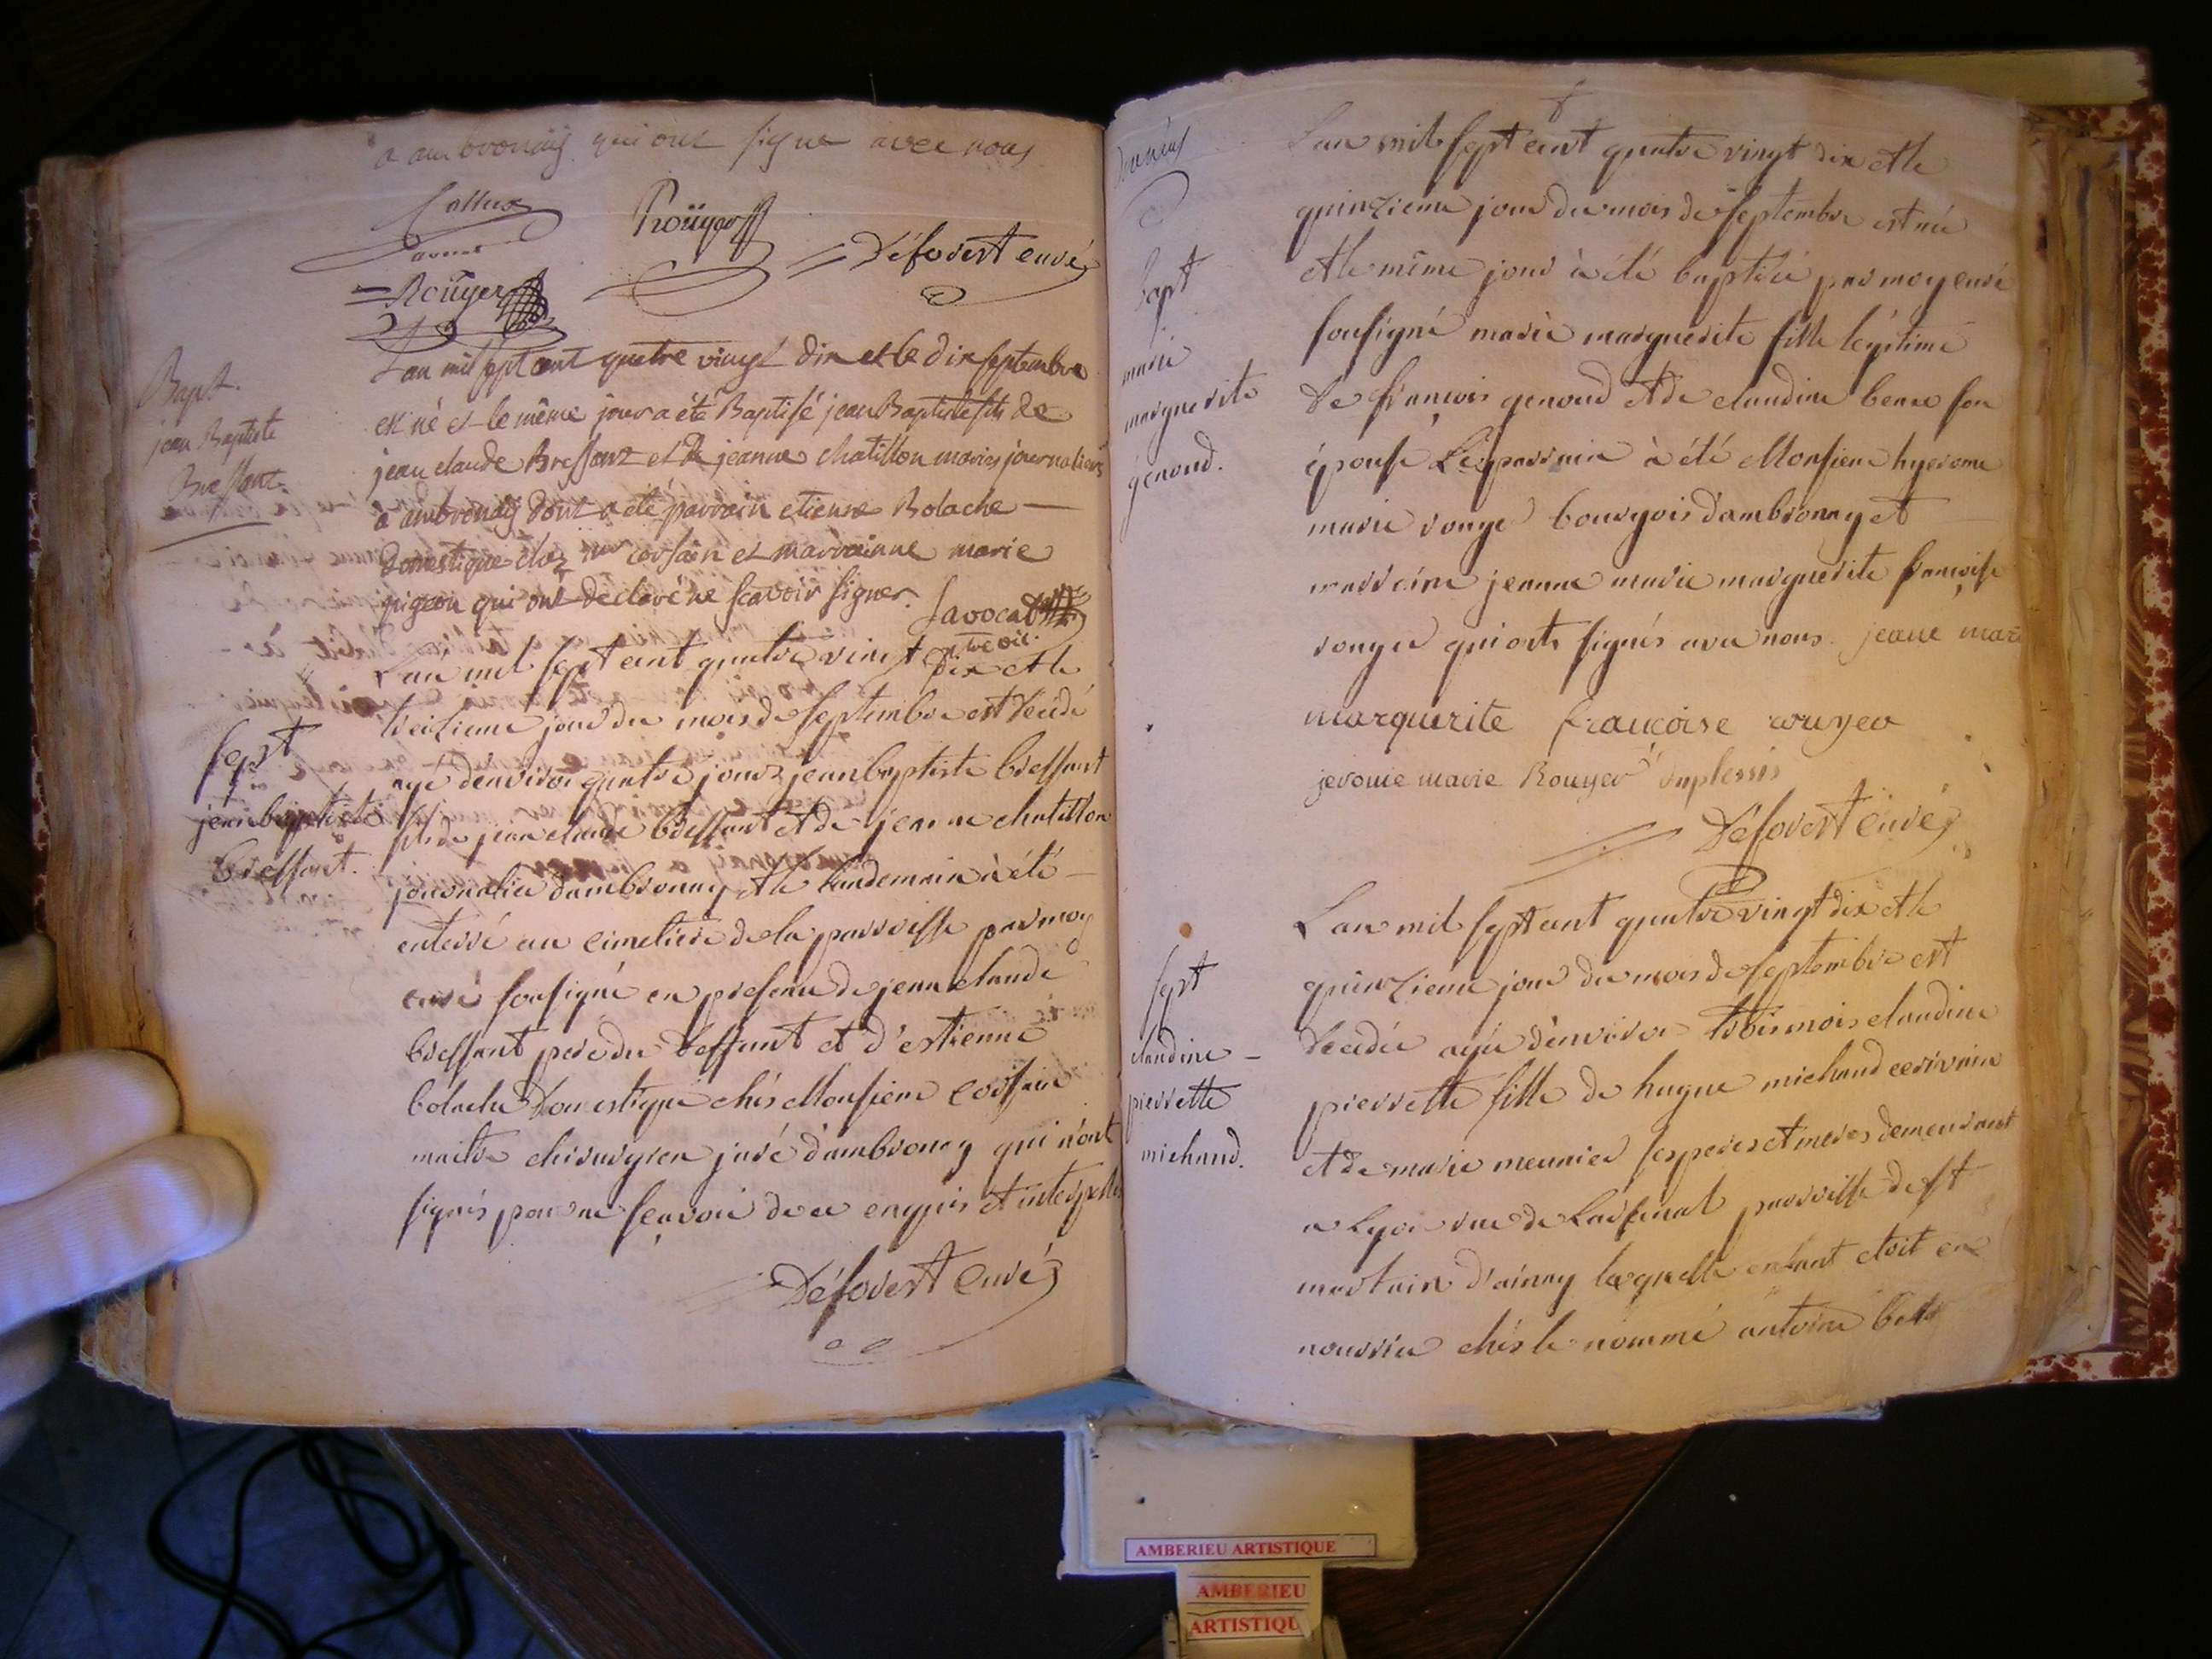 a ambronaÿ qui ont signe avec nous
Roüyer
Déforest curé
Roüyer
Bapt.
jean Baptiste
Bressant
L'an mil sept cent quatre vingt dix et le dix septembre
est né et le même jour a été Baptisé jean Baptiste fils de
jean claude Bressant et de jeanne chatillon mariés journaliers
a ambronaÿ dont a été parrain etienne Bolache
domestique chez mr corsain et marrainne marie
pigeon qui ont déclaré ne scavoir signer. Savocat
vicaire
Sept
jean baptiste
bressant.
L'an mil sept cent quatre vingt dix et le
treizieme jour du mois de septembre est decédé
agé denviron quatre jours jean baptiste bressant
fils de jean claude bressant et de jeanne chatillon
journalier d'ambronay et le lendemain à été
enterré au cimetiere de la parroisse par moy
curé sousigné en presence de jean claude
bressant pere du deffunt et d'estienne
bolache domestique chés Monsieur corsain
maitre chirurgien juré d'ambronay qui n'ont
signés pour ne sçavoir de ce enquis et interpellés
Déforest Curé
bapt
marie
marguerite
genoud.
L'an mil sept cent quatre vingt dix et le
quinzieme jour du mois de septembre est née
et le même jour à été baptisée par moy curé
sousigné marie marguerite fille légitime
de françois genoud et de claudine bene son
épouse Le parrain à été Monsieur hyerome
marie rouyer bourgois d'ambronay et
marraine jeanne marie marguerite françoise
rouyer qui onts signés avec nous. jeane marie
marguerite françoise rouyer
jerome marie Rouyer duplessis
Déforest Curé
Sept
claudine -
pierrette
michaud.
L'an mil sept cent quatre vingt dix et le
quinzieme jour du mois de septembre est
decedée agée d'environ trois mois claudine
pierrette fille de hugue michaud ecrivain
et de marie meunier ses peres et meres demeurant
a Lyon rue de Larsenal parroisse de st
martain d'ainay laquelle enfant etoit en
nourrice chés le nommé antoine
AMBERIEU ARTISTIQUE
AMBERIEU
ARTISTIQU